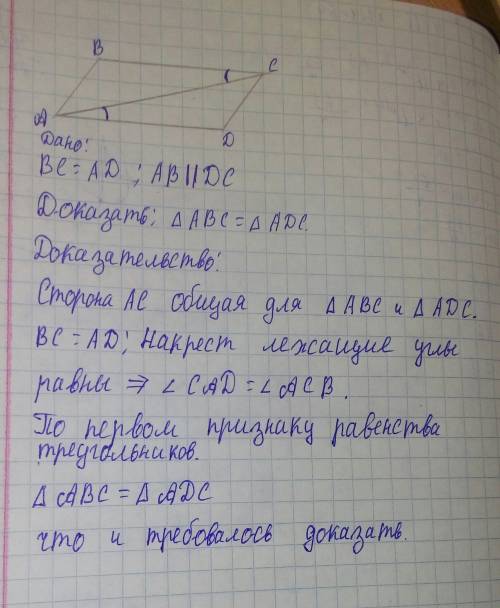 B
C
A
D
Дано:
BC = AD ; AB || DC
Доказать: △ ABC = △ ADC.
Доказательство:
Сторона AC общая для △ ABC и △ ADC.
BC = AD; Накрест лежащие углы
равны ⇒ ∠ CAD = ∠ ACB.
По первом признику равенства
треугольников.
△ ABC = △ ADC
что и требовалось доказать.